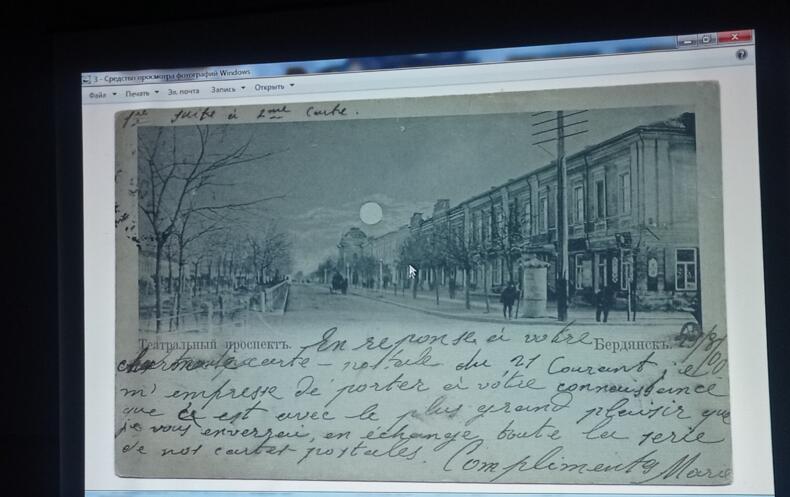 3 - Средство просмотра фотографий Windows
Файл Печать Эл. почта Запись Открыть
1re suite à 2me Carte.
Театральный проспектъ.
Бердянскъ.
En reponse à votre
charmante carte-postale du 21 Courant, je
m'empresse de porter à votre connaissance
que c'est avec le plus grand plaisir que
je vous enverrai, en échange toute la serie
de nos cartes postales. Compliments Marie